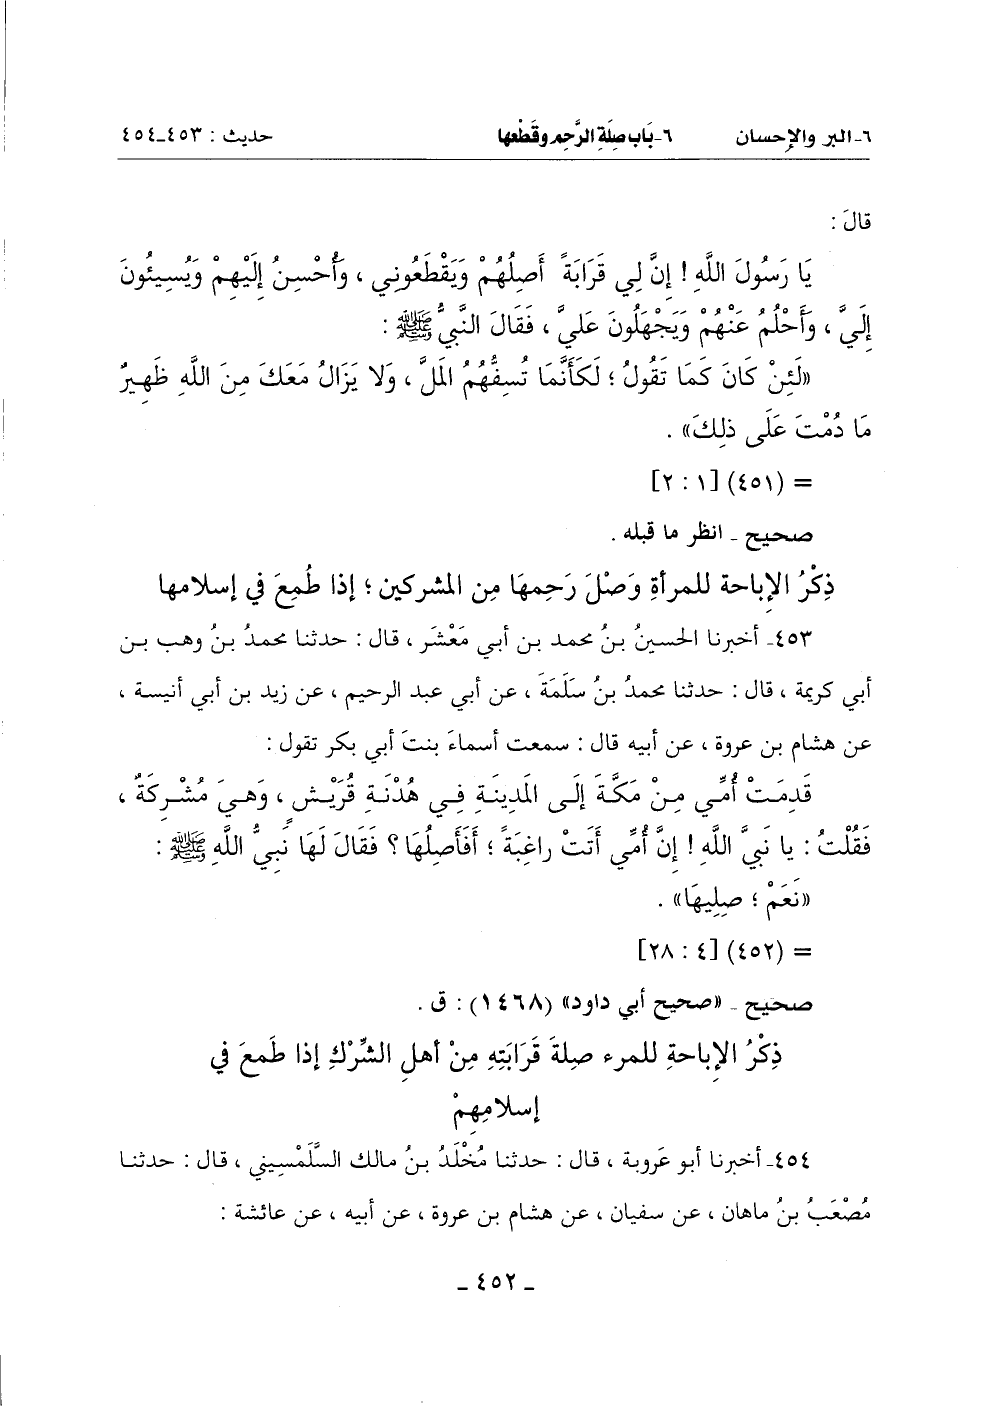 ٦ـ البر والإحسان ٦ـ بَاب صِلَةِ الرَّحِمِ وقَطْعِها حديث : ٤٥٣ـ٤٥٤
قالَ :
يَا رَسُولَ اللَّهِ ! إِنَّ لِي قَرَابَةً أَصِلُهُمْ وَيَقْطَعُونِي ، وَأُحْسِنُ إِلَيْهِمْ وَيُسِيئُونَ
إِلَيَّ ، وَأَحْلُمُ عَنْهُمْ وَيَجْهَلُونَ عَلَيَّ ، فَقَالَ النَّبِيُّ ﷺ :
«لَئِنْ كَانَ كَمَا تَقُولُ ؛ لَكَأَنَّمَا تُسِفُّهُمُ المَلَّ ، وَلا يَزَالُ مَعَكَ مِنَ اللَّهِ ظَهِيرٌ
مَا دُمْتَ عَلَى ذلِكَ» .
= (٤٥١) [١ : ٢]
صحيح ـ انظر ما قبله .
ذِكْرُ الإباحة للمرأةِ وَصْلَ رَحِمِهَا مِن المشركين ؛ إذا طُمِعَ في إسلامها
٤٥٣ـ أخبرنا الحسينُ بنُ محمد بن أبي مَعْشَر ، قال : حدثنا محمدُ بنُ وهب بن
أبي كريمة ، قال : حدثنا محمدُ بنُ سَلَمَةَ ، عن أبي عبد الرحيم ، عن زيد بن أبي أنيسة ،
عن هشام بن عروة ، عن أبيه قال : سمعت أسماءَ بنتَ أبي بكر تقول :
قَدِمَتْ أُمِّي مِنْ مَكَّةَ إلَى المَدِينَةِ فِي هُدْنَةِ قُرَيْشٍ ، وَهِيَ مُشْرِكَةٌ ،
فَقُلْتُ : يا نَبيَّ اللَّهِ ! إِنَّ أُمِّي أَتَتْ راغِبَةً ؛ أَفَأَصِلُهَا ؟ فَقَالَ لَهَا نَبِيُّ اللَّهِ ﷺ :
«نَعَمْ ؛ صِلِيهَا» .
= (٤٥٢) [٤ : ٢٨]
صحيح ـ «صحيح أبي داود» (١٤٦٨) : ق .
ذِكْرُ الإباحةِ للمرء صلةَ قَرَابَتِهِ مِنْ أهلِ الشِّرْكِ إذا طَمعَ في
إسلامِهِمْ
٤٥٤ـ أخبرنا أبو عَروبة ، قال : حدثنا مُخْلَدُ بنُ مالك السَّلَمْسِيني ، قال : حدثنا
مُصْعَبُ بنُ ماهان ، عن سفيان ، عن هشام بن عروة ، عن أبيه ، عن عائشة :
ـ ٤٥٢ ـ